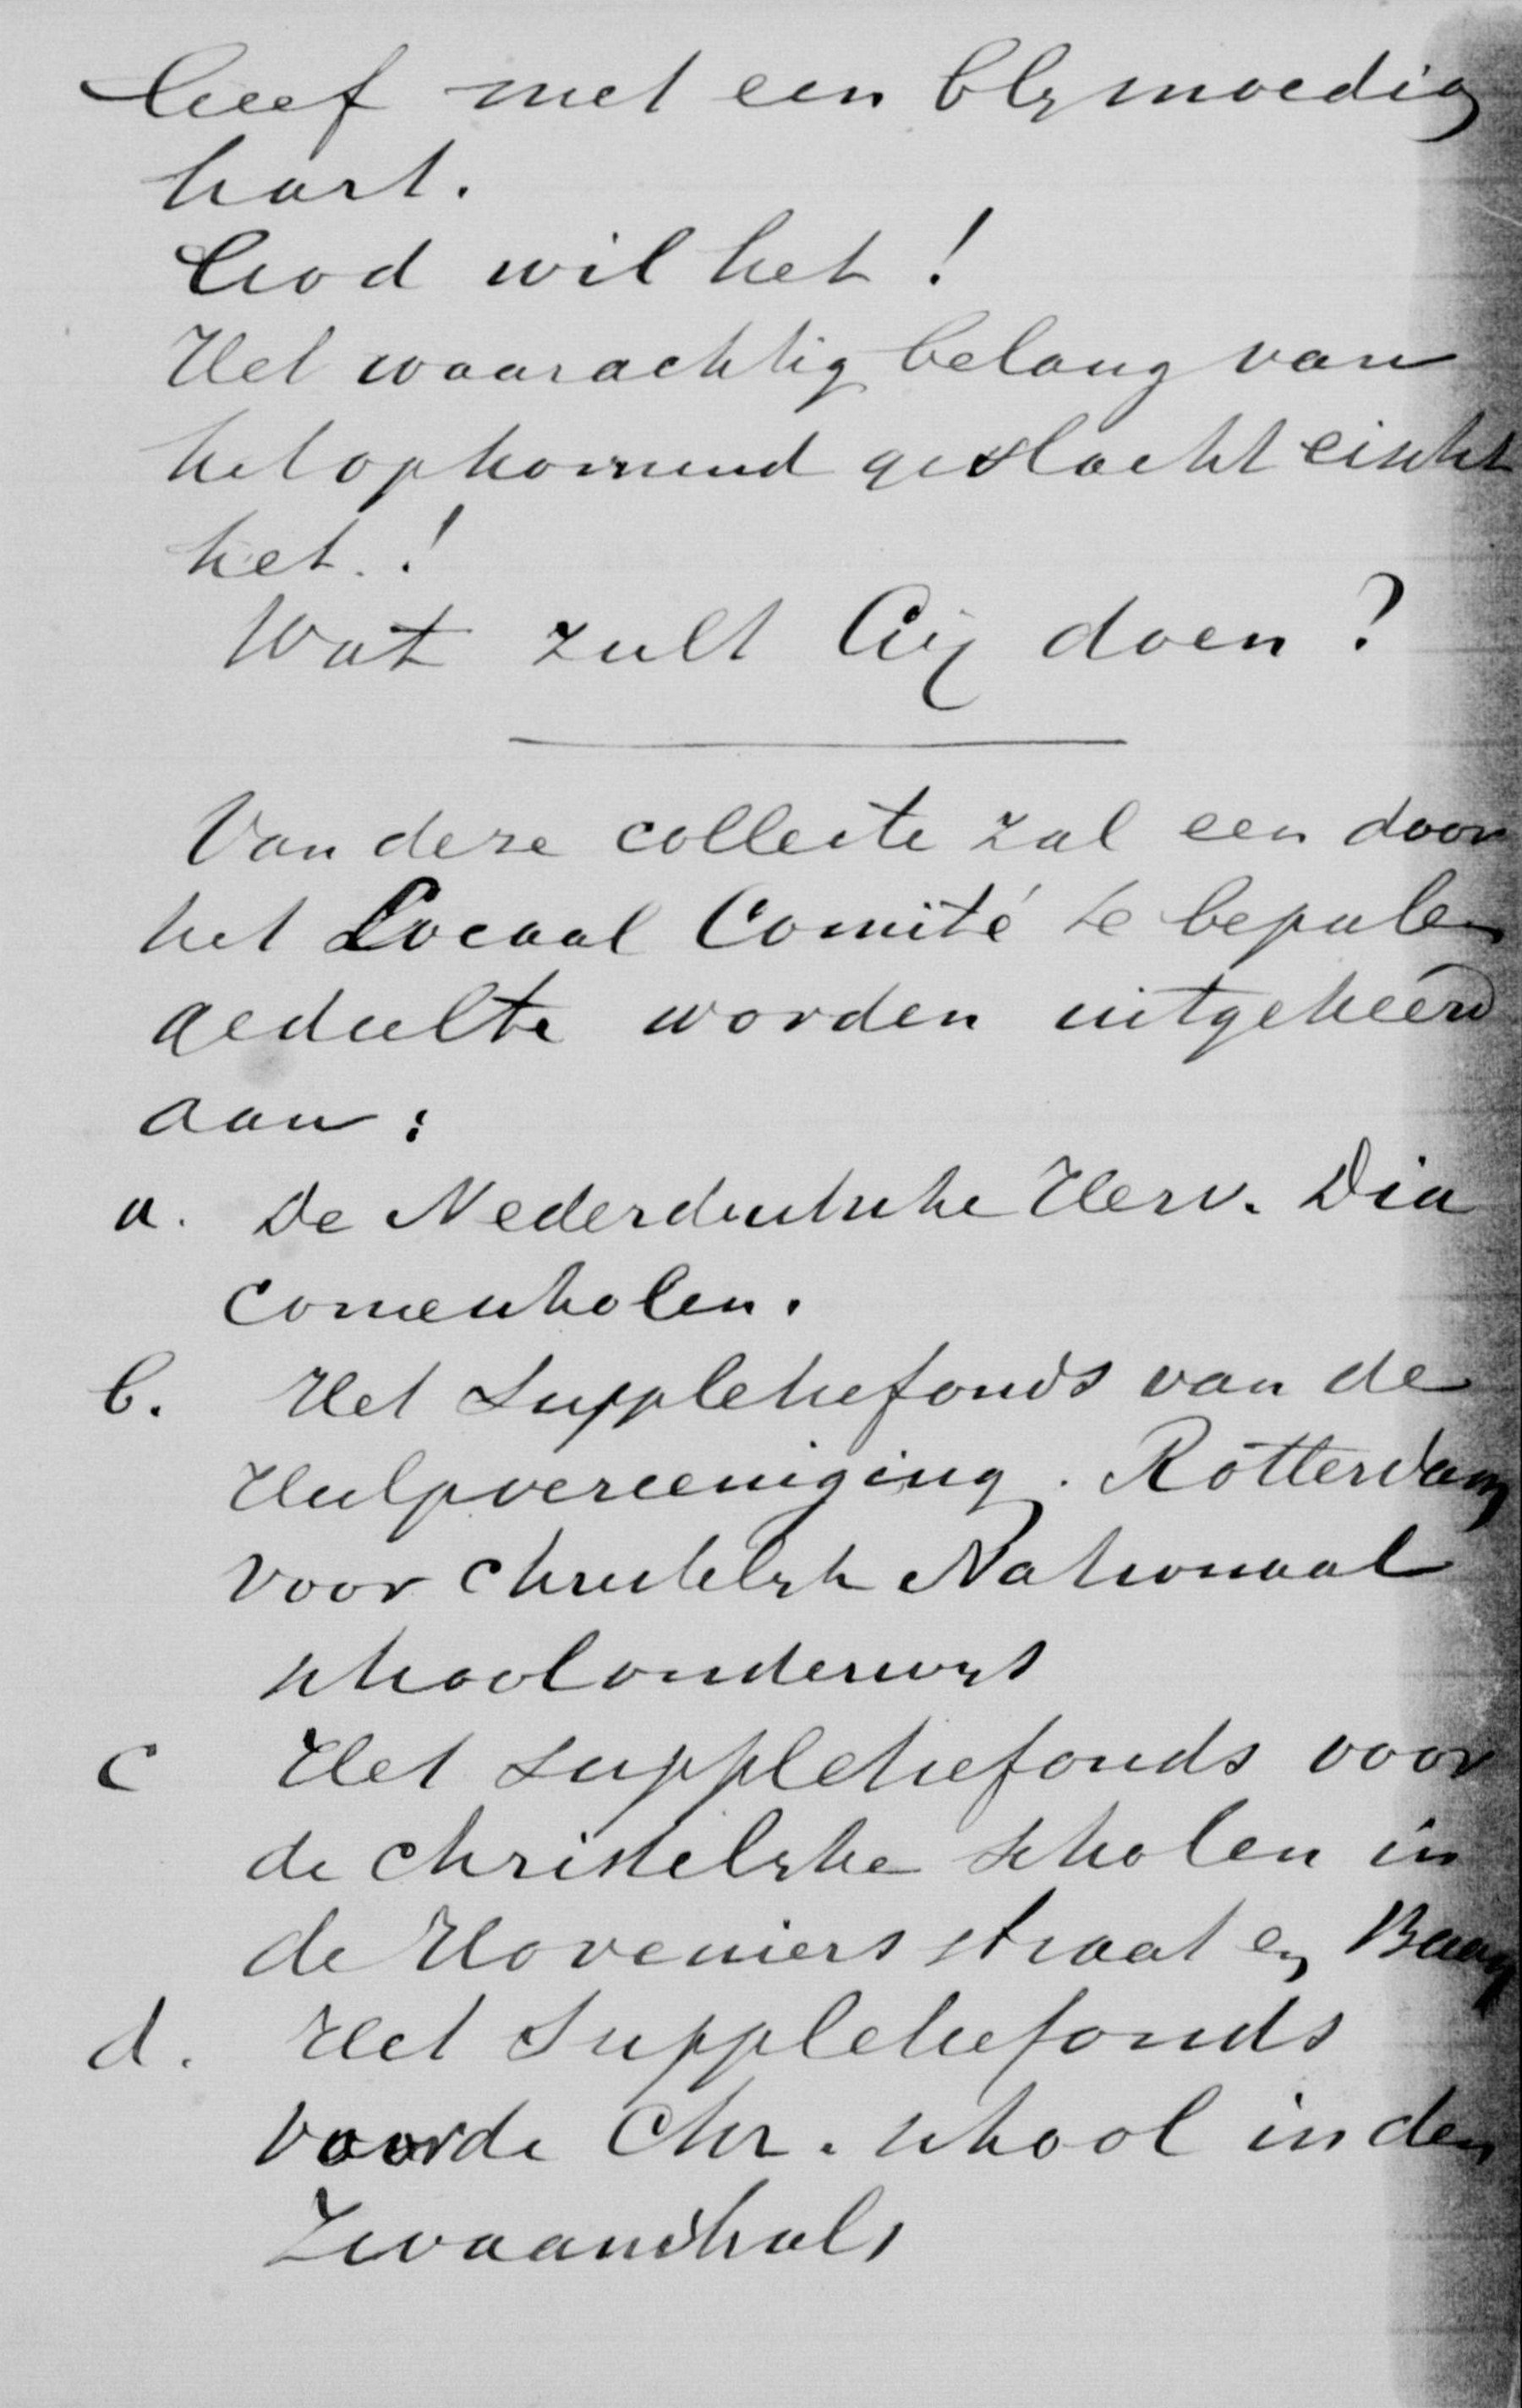 Geef met een blijmoedig
hart.
God wil het!
Het waarachtig belang van
het opkomend geslacht eischt
het.!
Wat zult Gij doen?
Van deze collecte zal een door
het Locaal Comité te bepalen
gedeelte worden uitgekeerd
aan:
a. De Nederduitsche Herv. Dia
coniescholen.
b. Het Suppletiefonds van de
Hulpvereeniging. Rotterdam
voor christelijk Nationaal
schoolonderwijs
c Het suppletiefonds voor
de christelijke scholen in
de Hoveniersstraat en Baan
d. Het Suppletiefonds
voor de Chr. school in den
Zwaanshals